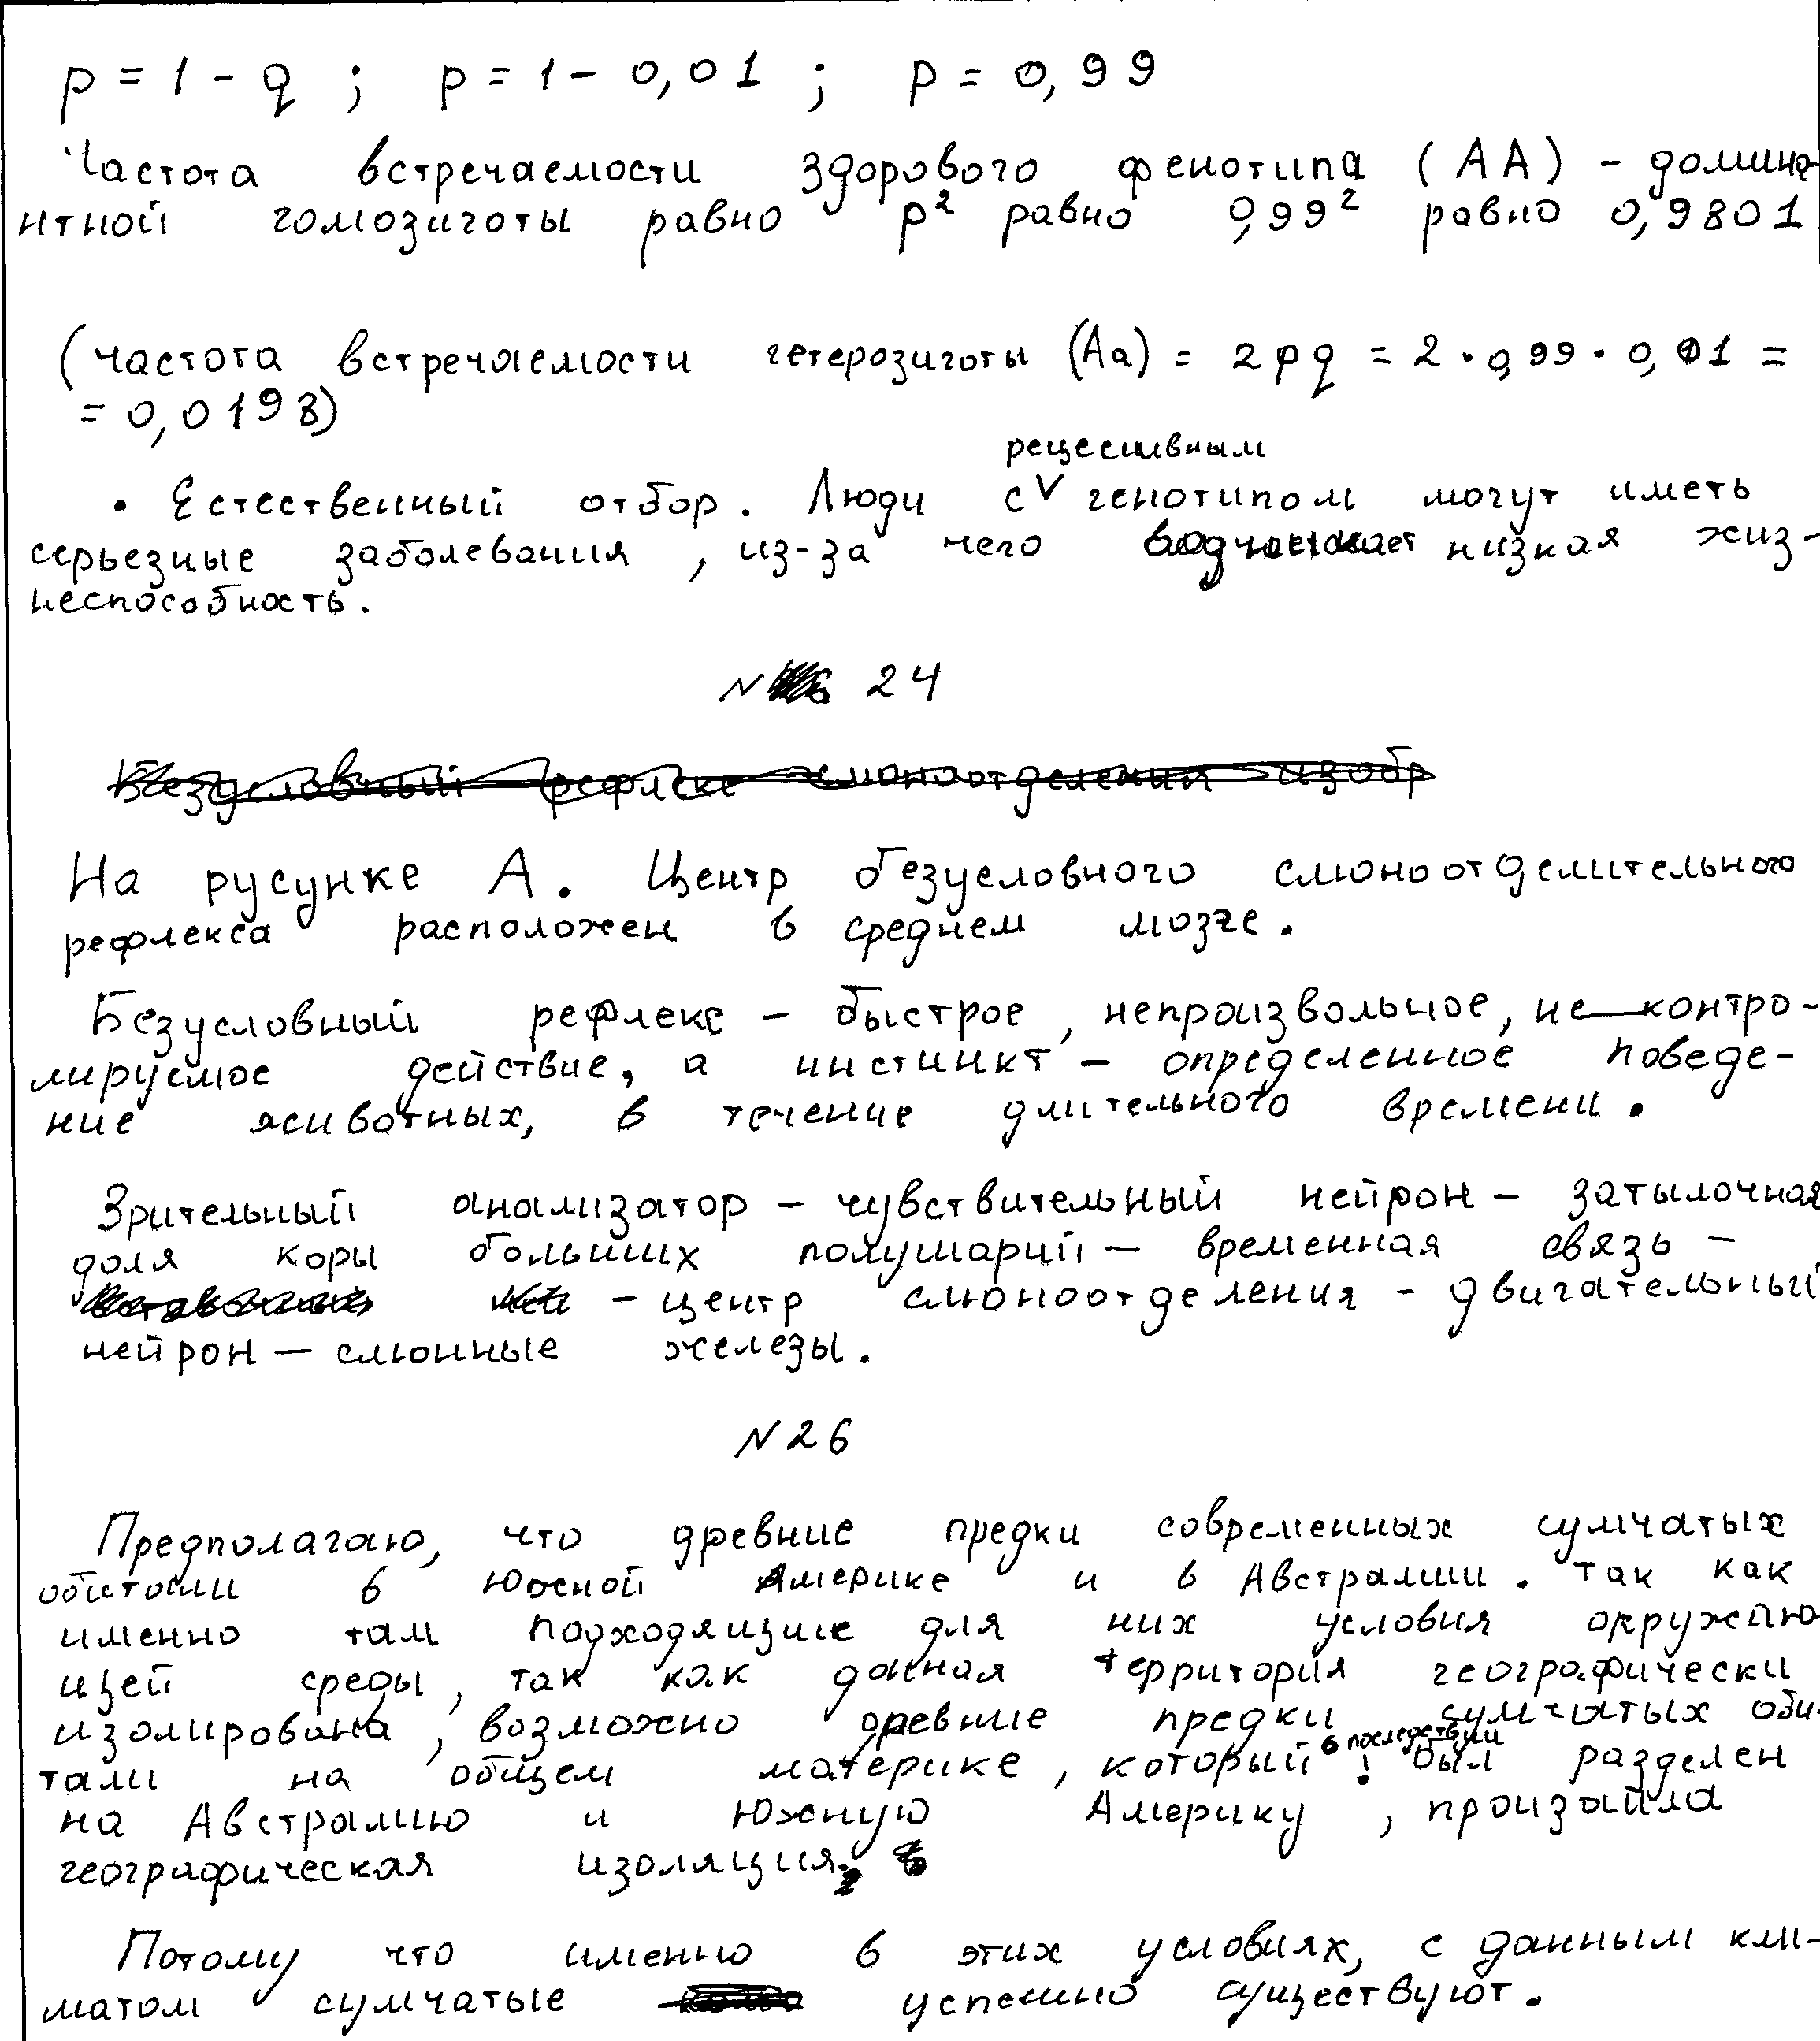 p = 1 - q ; p = 1 - 0,01 ; p = 0,99
Частота встречаемости здорового фенотипа (АА) - домина-
нтной гомозиготы равно p² равно 0,99² равно 0,9801
(частота встречаемости гетерозиготы (Аа) = 2pq = 2 · 0,99 · 0,01 =
= 0,0198)
рецессивным
• Естественный отбор. Люди с V генотипом могут иметь
серьезные заболевания, из-за чего низкая жиз-
неспособность.
N 24
Безусловный рефлекс слюноотделения изобр
На русунке А. Центр безусловного слюноотделительного
рефлекса расположен в среднем мозге.
Безусловный рефлекс - быстрое, непроизвольное, не контро-
лируемое действие, а инстинкт - определенное поведе-
ние животных, в течение длительного времени.
Зрительный анализатор - чувствительный нейрон - затылочная
доля коры больших полушарий - временная связь -
- центр слюноотделения - двигательный
нейрон - слюнные железы.
N26
Предполагаю, что древние предки современных сумчатых
обитали в Южной Америке и в Австралии. Так как
именно там подходящие для них условия окружаю
щей среды, так как данная территория географически
изолирована, возможно древние предки сумчатых оби-
в последствии
тали на общем материке, который был разделен
на Австралию и Южную Америку, произошла
географическая изоляция.
Потому что именно в этих условиях, с данным кли-
матом сумчатые успешно существуют.